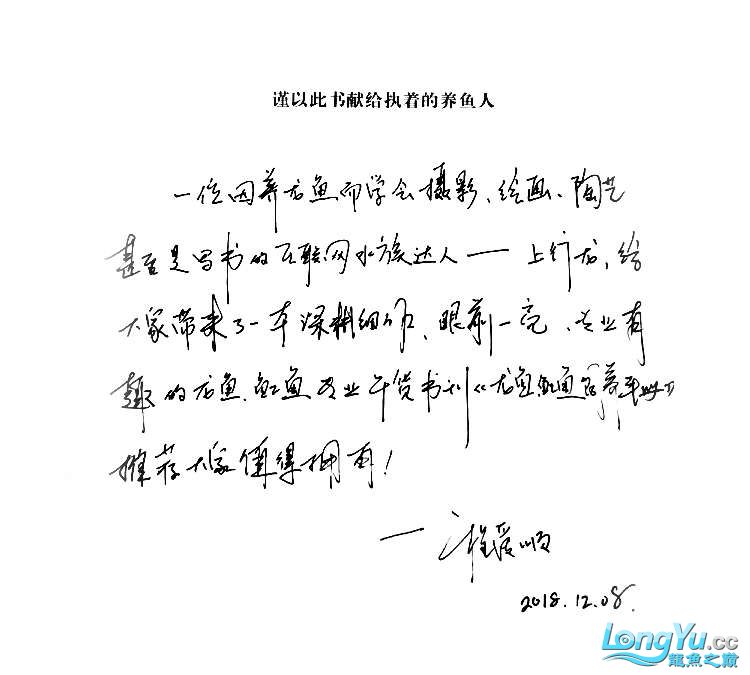 谨以此书献给执着的养鱼人
一位因养龙鱼而学会摄影、绘画、陶艺
甚至是写书的互联网水族达人——上行龙,给
大家带来了一本深耕细作、眼前一亮、专业有
趣的龙鱼、魟鱼专业干货书刊《龙鱼魟鱼饲养手册》
推荐大家值得拥有!
—
2018.12.08.
LongYu.cc
龍魚之巔